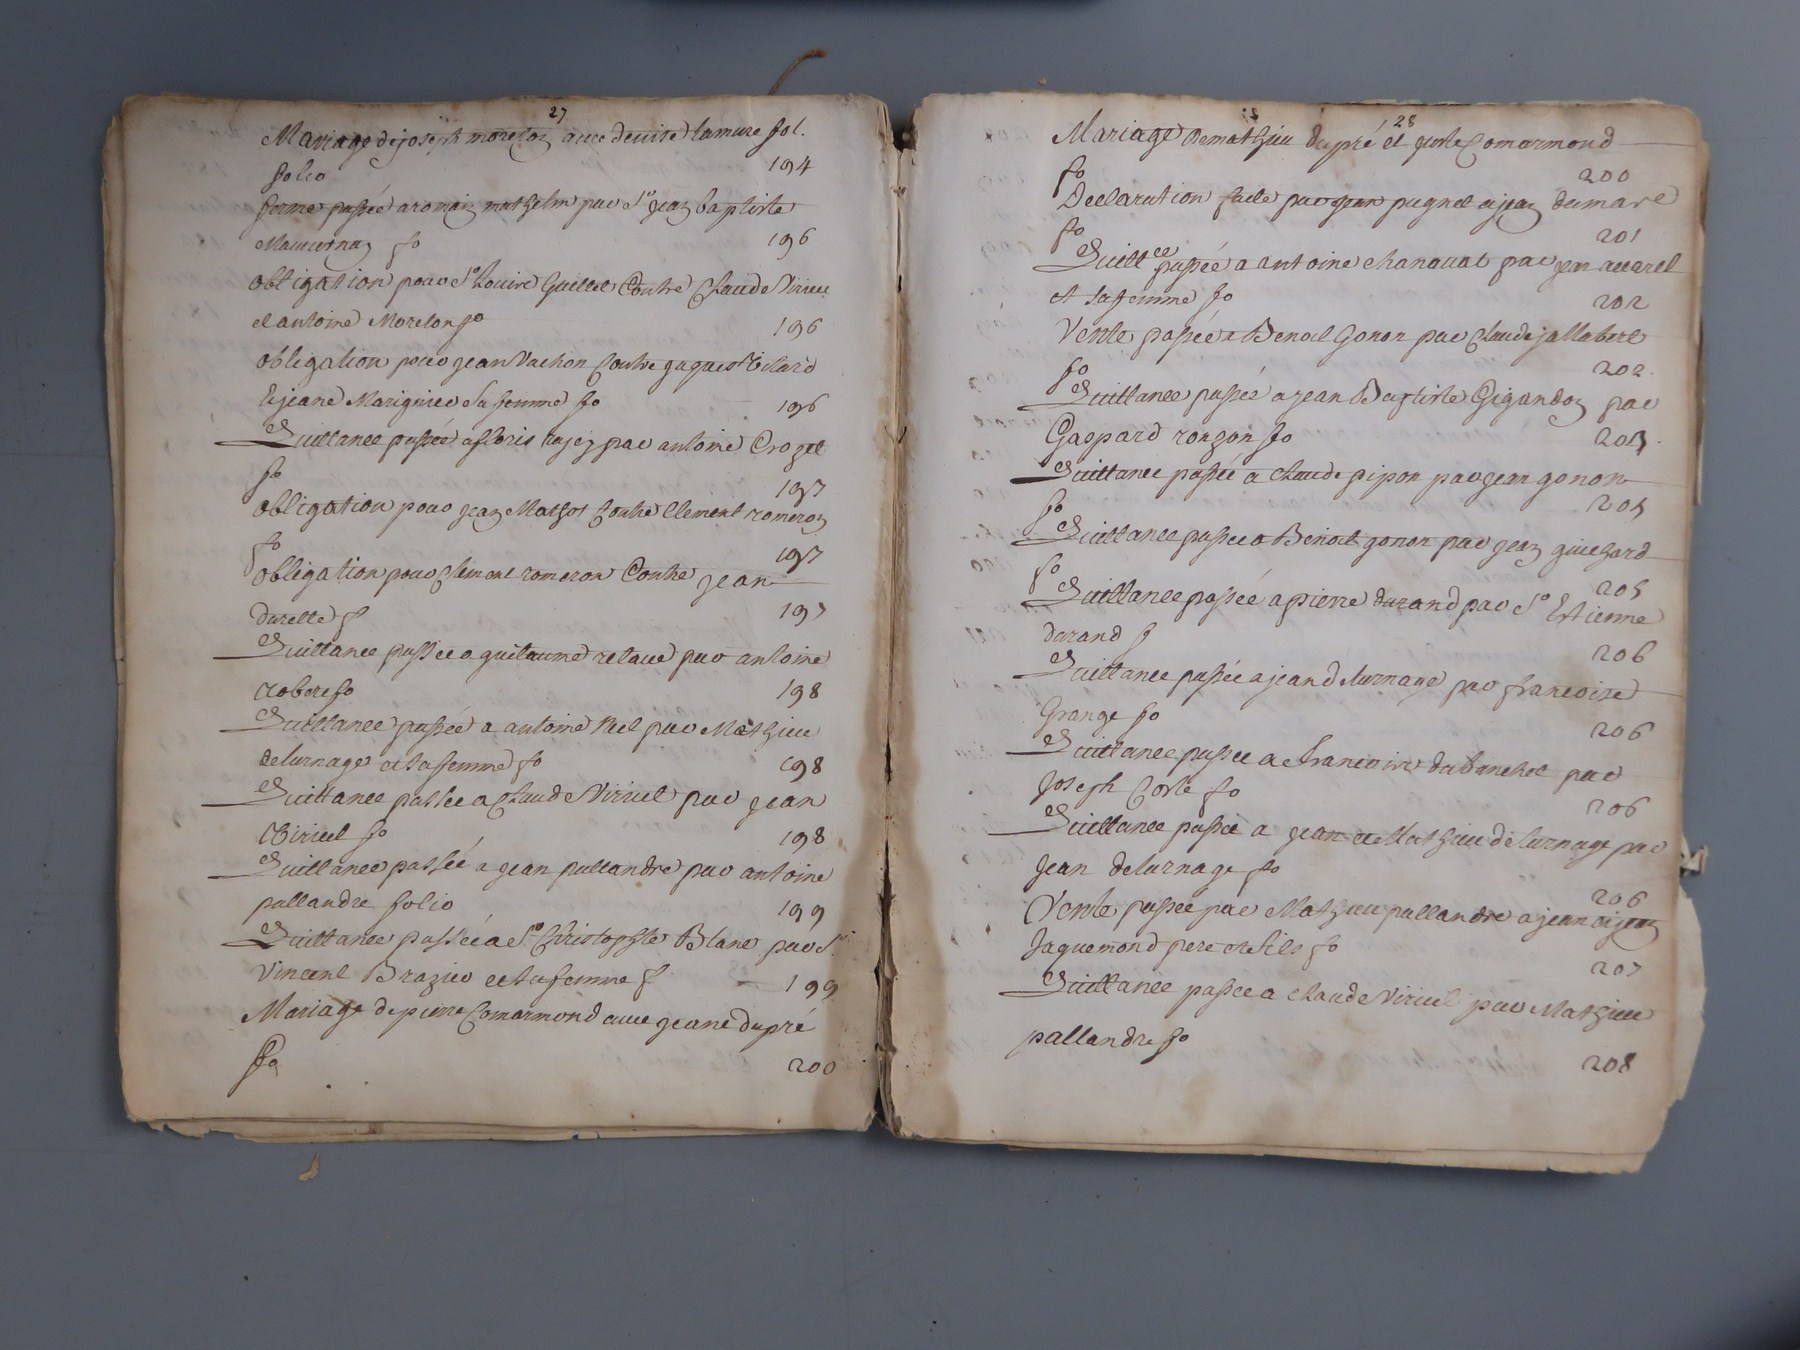 27
Mariage de joseph morelon avec denise lamure fol.
folio 194
ferme passée a romain mathelin par Sr jean baptiste
Maucernay fo 196
obligation pour Sr Louire Guillet Contre Claude Viricel
et antoine Morelon fo 196
obligation pour jean Vachon Contre jaques Vilard
Et jeane Mariguier sa femme fo 196
Quittance passée a floris rajey par antoine Crozet
fo 197
obligation pour jean Mathot Contre Clement romeron
fo 197
obligation pour Clement romeron Contre jean
Darette f 197
Quittance passée a guilaume retaud par antoine
crobere fo 198
Quittance passée a antoine Neel par Mathieu
delurnage et sa femme fo 198
Quittance passée a Claude Viricel par jean
Viricel fo 198
Quittance passée a jean pallandre par antoine
pallandre folio 199
Quittance passée a Sr Christophle Blanc par Sr
Vincent Brazier et sa femme f 199
Mariage de pierre Comarmond avec jeane dupré
fo 200
28
Mariage de mathieu dupré et juste Comarmond
fo 200
Declaration faite par jean pugnet a jean damare
fo 201
Quittce passée a antoine chanavat par jean avarel
et sa femme fo 202
Vente passée a Benoit Gonon par Claude jallabert
fo 202.
Quittance passée a jean Baptiste Gigandon par
Gaspard ronzon fo 203
Quittance passée a Claude pipon par jean gonon
fo 205
Quittance passée a Benoit gonon par jean guichard
fo 205
Quittance passée a pierre durand par Sr Estienne
durand f 206
Quittance passée a jean delurnage par francoise
Grange fo 206
Quittance passée a francoise dubanchet par
Joseph Coste fo 206
Quittance passée a jean et Mathieu delurnage par
Jean delurnage fo 206
Vente passée par Mathieu pallandre a jean et jean
Jaquemond pere et fils fo 207
Quittance passée a claude Viricel par Mathieu
pallandre fo 208